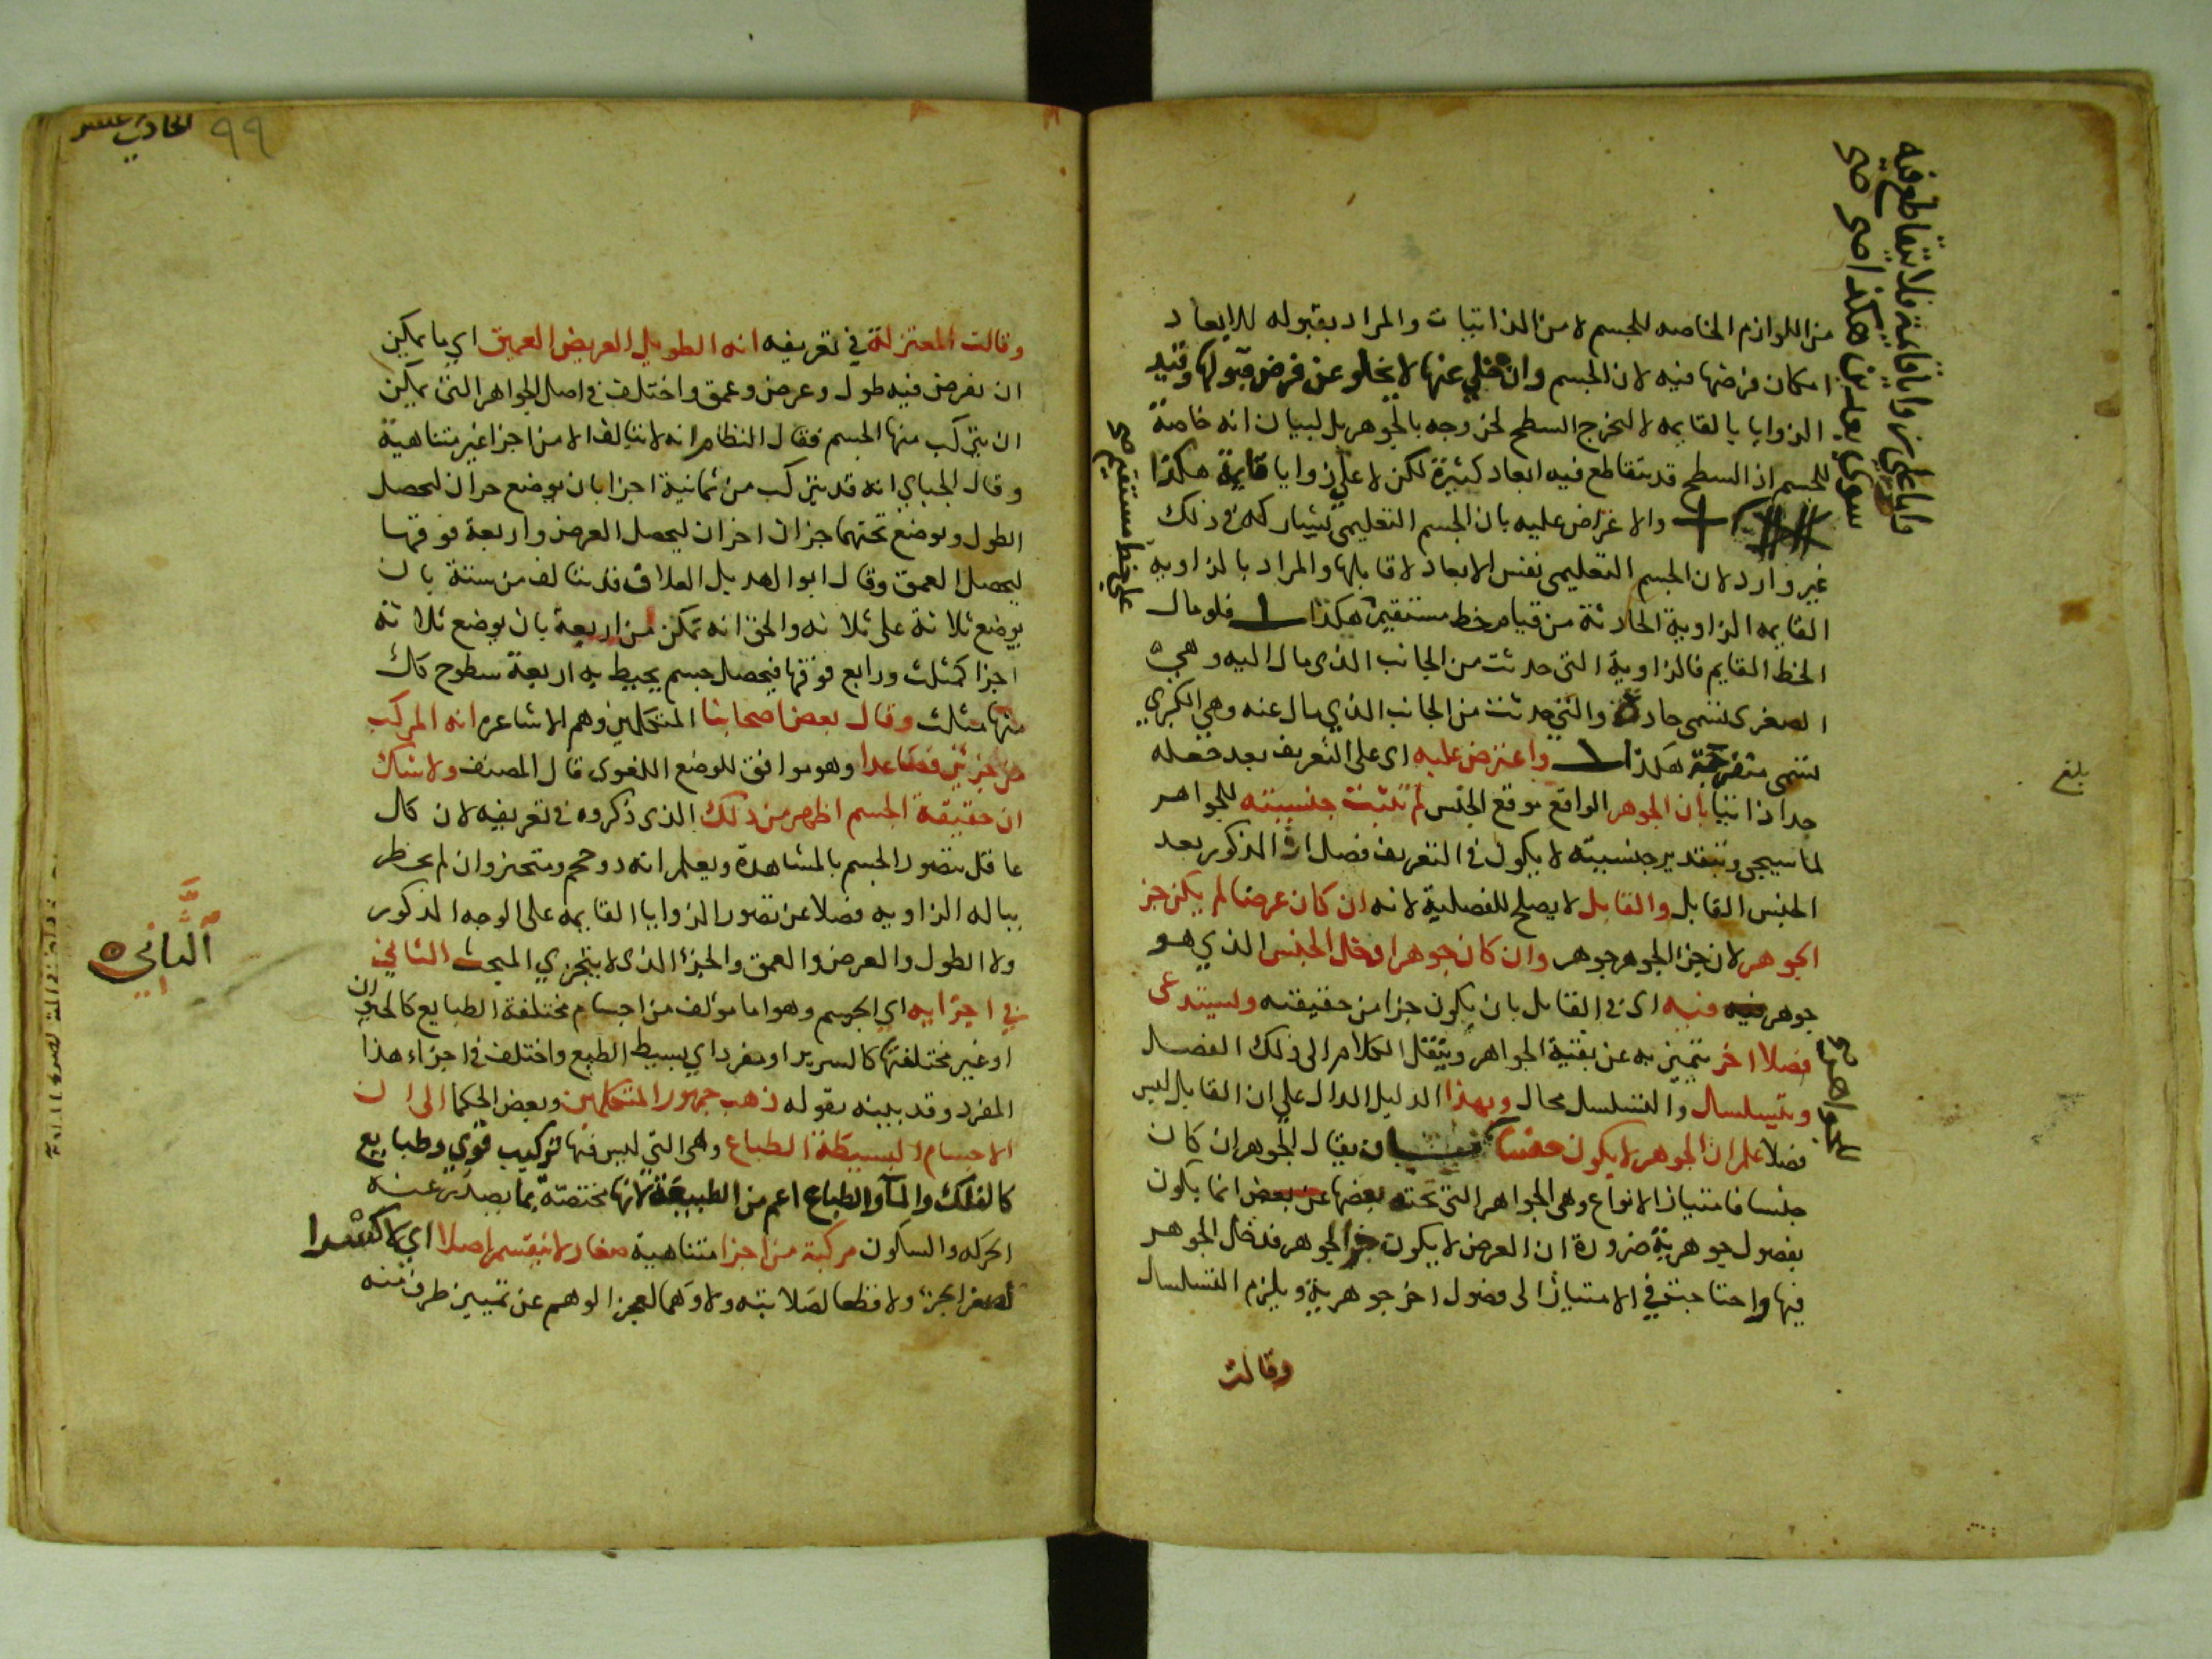 من اللوازم الخاصه للجسم لا من الذاتيات والمراد بقبوله للابعاد
امكان فرضها فيه لان الجسم وان خلي عنها لا يخلو عن فرض قبولها وقيد
الزوايا بالقايمه لا لتخرج السطح لخروجه بالجوهر بل لبيان انه خاصة
للجسم اذ السطح قد يتقاطع فيه ابعاد كثيرة لكن لا علي زوايا قايمة هكذا
والاعتراض عليه بان الجسم التعليمي يشاركه في ذلك
غير وارد لان الجسم التعليمي نفس الابعاد لا قابلها والمراد بالزاويه
القايمه الزاوية الحادثة من قيام خط مستقيم هكذا فلو مال
الخط القايم فالزاوية التي حدثت من الجانب الذي مال اليه وهي
الصغرى تسمى حادة والتي حدثت من الجانب الذي مال عنه وهي الكبري
تسمى منفرجة هكذا واعترض عليه اى على التعريف بعد جعله
حدا ذاتيا بان الجوهر الواقع موقع الجنس لم تثبت جنسيته للجواهر
لما سيجي وبتقدير جنسيته لا يكون في التعريف فصل اذ المذكور بعد
الجنس القابل والقابل لا يصلح للفصلية لانه ان كان عرضا لم يكن جز
الجوهر لان جز الجوهر جوهر وان كان جوهرا دخل الجنس الذي هو
جوهر فيه اى في القابل بان يكون جزا من حقيقته ويستدعى
فصلا اخر يتميز به عن بقية الجواهر وينقل الكلام الى ذلك الفصل
ويتسلسل والتسلسل محال وبهذا الدليل الدال علي ان القابل ليس
فصلا علم ان الجوهر لا يكون جنسا بان يقال الجوهر ان كان
جنسا فامتياز الانواع وهي الجواهر التي تحته بعضها عن بعض انما يكون
بفصول جوهرية ضرورة ان العرض لا يكون جزا لجوهر فدخل الجوهر
فيها واحتاجت في الامتياز الى فصول اخر جوهرية ويلزم التسلسل
وقالت
فاما علي زوايا قايمة فلا يتقاطع فيه
سوى بعدين هكذا صح صح
علي خط مستقيم صح
للجواهر صح
بلغ
٩٩
الحادي عشر
وقالت المعتزلة في تعريفه انه الطويل العريض العميق اي ما يمكن
ان يفرض فيه طول وعرض وعمق واختلف في اصل الجواهر التي يمكن
ان يتركب منها الجسم فقال النظام انه لا يتالف الا من اجزا غير متناهية
وقال الجباي انه قد يتركب من ثمانية اجزا بان يوضع جزان ليحصل
الطول ويوضع تحتهما جزان اخران ليحصل العرض واربعة فوقها
ليحصل العمق وقال ابو الهديل العلاف قد يتالف من ستة بان
يوضع ثلاثة على ثلاثه والحق انه يمكن من اربعة بان يوضع ثلاثة
اجزا كمثلث ورابع فوقها فيحصل جسم يحيط به اربعة سطوح كل
منها مثلث وقال بعض اصحابنا المتكلمين وهم الاشاعره انه المركب
من جزئين فصاعدا وهو موافق للوضع اللغوى قال المصنف ولا شك
ان حقيقة الجسم اظهر من ذلك الذى ذكروه في تعريفه لان كل
عاقل يتصور الجسم بالمشاهدة ويعلم انه ذو حجم ومتحيز وان لم يخطر
بباله الزاويه فضلا عن تصور الزوايا القايمه على الوجه المذكور
ولا الطول والعرض والعمق والجزء الذى لا يتجزي المبحث الثاني
في اجزايه اي الجسم وهو اما مولف من اجسام مختلفة الطبايع كالحيوان
او غير مختلفتها كالسرير او مفرد اي بسيط الطبع واختلف في اجزاء هذا
المفرد وقد بينه بقوله ذهب جمهور المتكلمين وبعض الحكما الى ان
الاجسام البسيطة الطباع وهى التي ليس فيها تركيب قوي وطبايع
كالفلك والمآ والطباع اعم من الطبيعة لانها مختصة بما يصدر عنه
الحركه والسكون مركبة من اجزا متناهية صغار لا تنقسم اصلا اي لا كسرا
لصغر الجزء ولا قطعا لصلابته ولا وهما لعجز الوهم عن تمييز طرف منه
الثاني